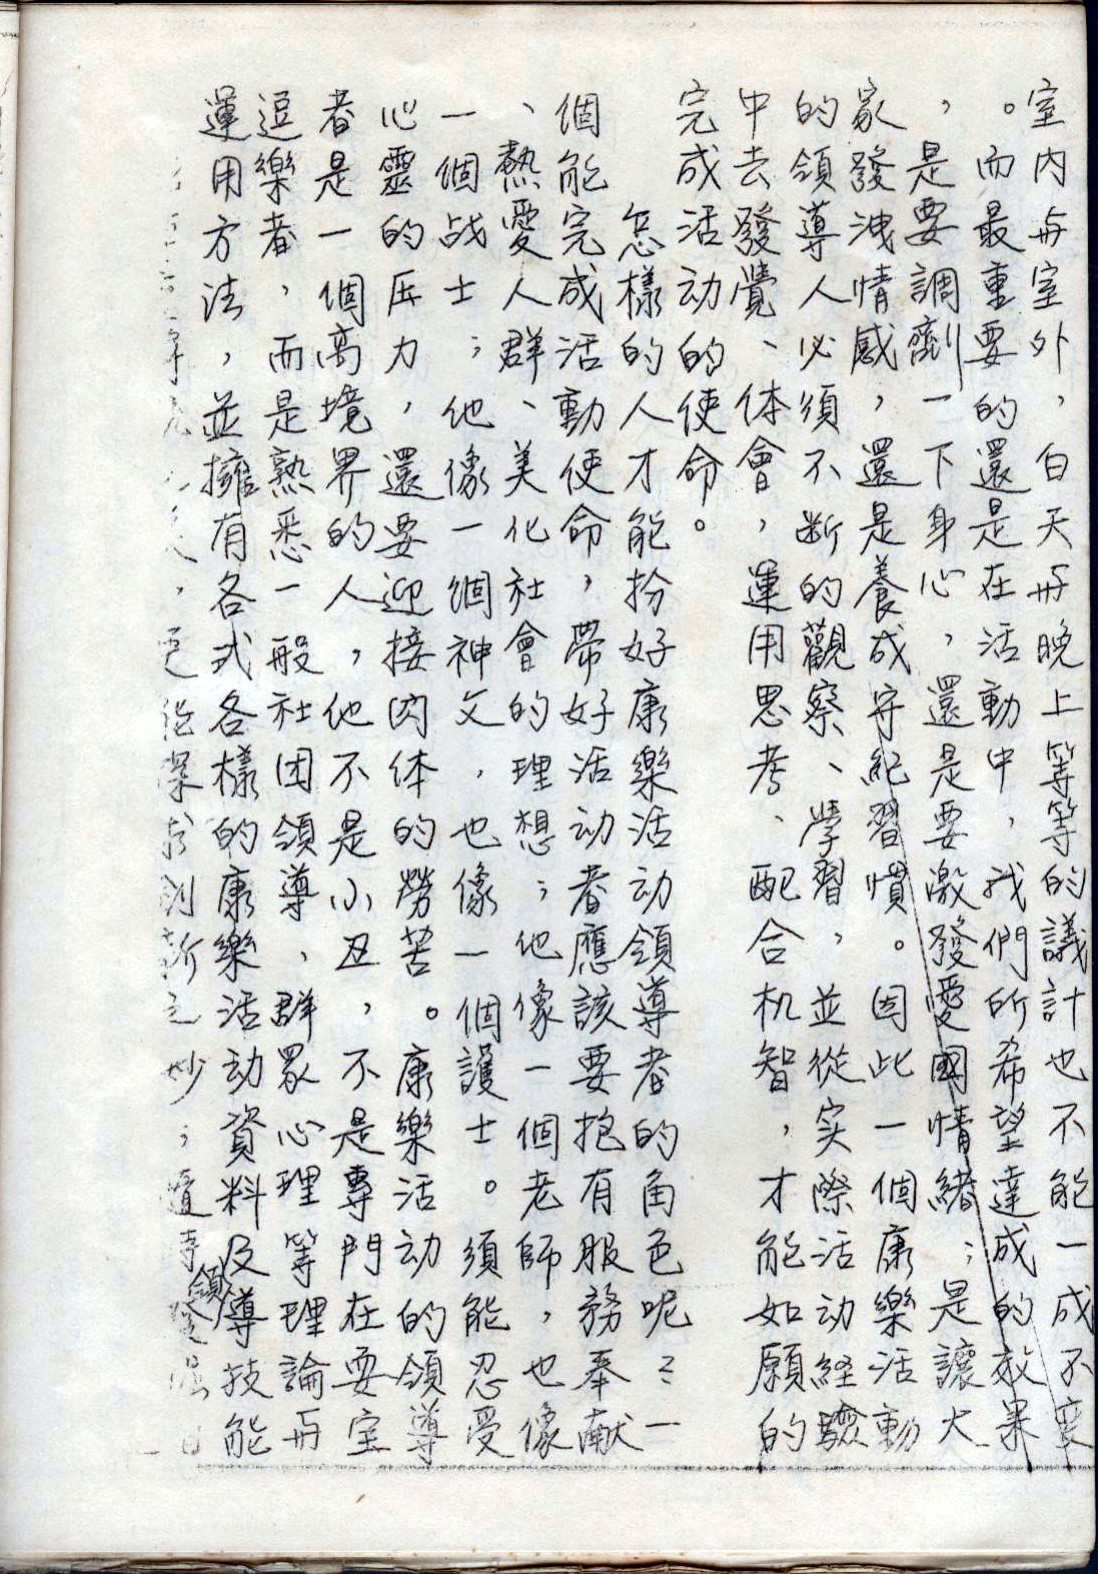 室內与室外，白天与晚上等等的議計也不能一成不变
。而最重要的還是在活動中，我們所希望達成的效果
，是要調劑一下身心，還是要激發愛國情緒；是讓大
家發洩情感，還是養成守紀習慣。因此一個康樂活動
的領導人必須不断的觀察、學習，並從实際活动経驗
中去發覺、体會，運用思考、配合机智，才能如願的
完成活动的使命。
怎樣的人才能扮好康樂活动領導者的角色呢？一
個能完成活動使命，帶好活动者應該要抱有服務奉献
、熱愛人群、美化社會的理想；他像一個老師，也像
一個战士；他像一個神父，也像一個護士。須能忍受
心靈的压力，還要迎接肉体的勞苦。康樂活动的領導
者是一個高境界的人，他不是小丑，不是專門在耍宝
逗樂者，而是熟悉一般社团領導、群眾心理等理論与
運用方法，並擁有各式各樣的康樂活动資料及領導技能
，更能創新之妙；